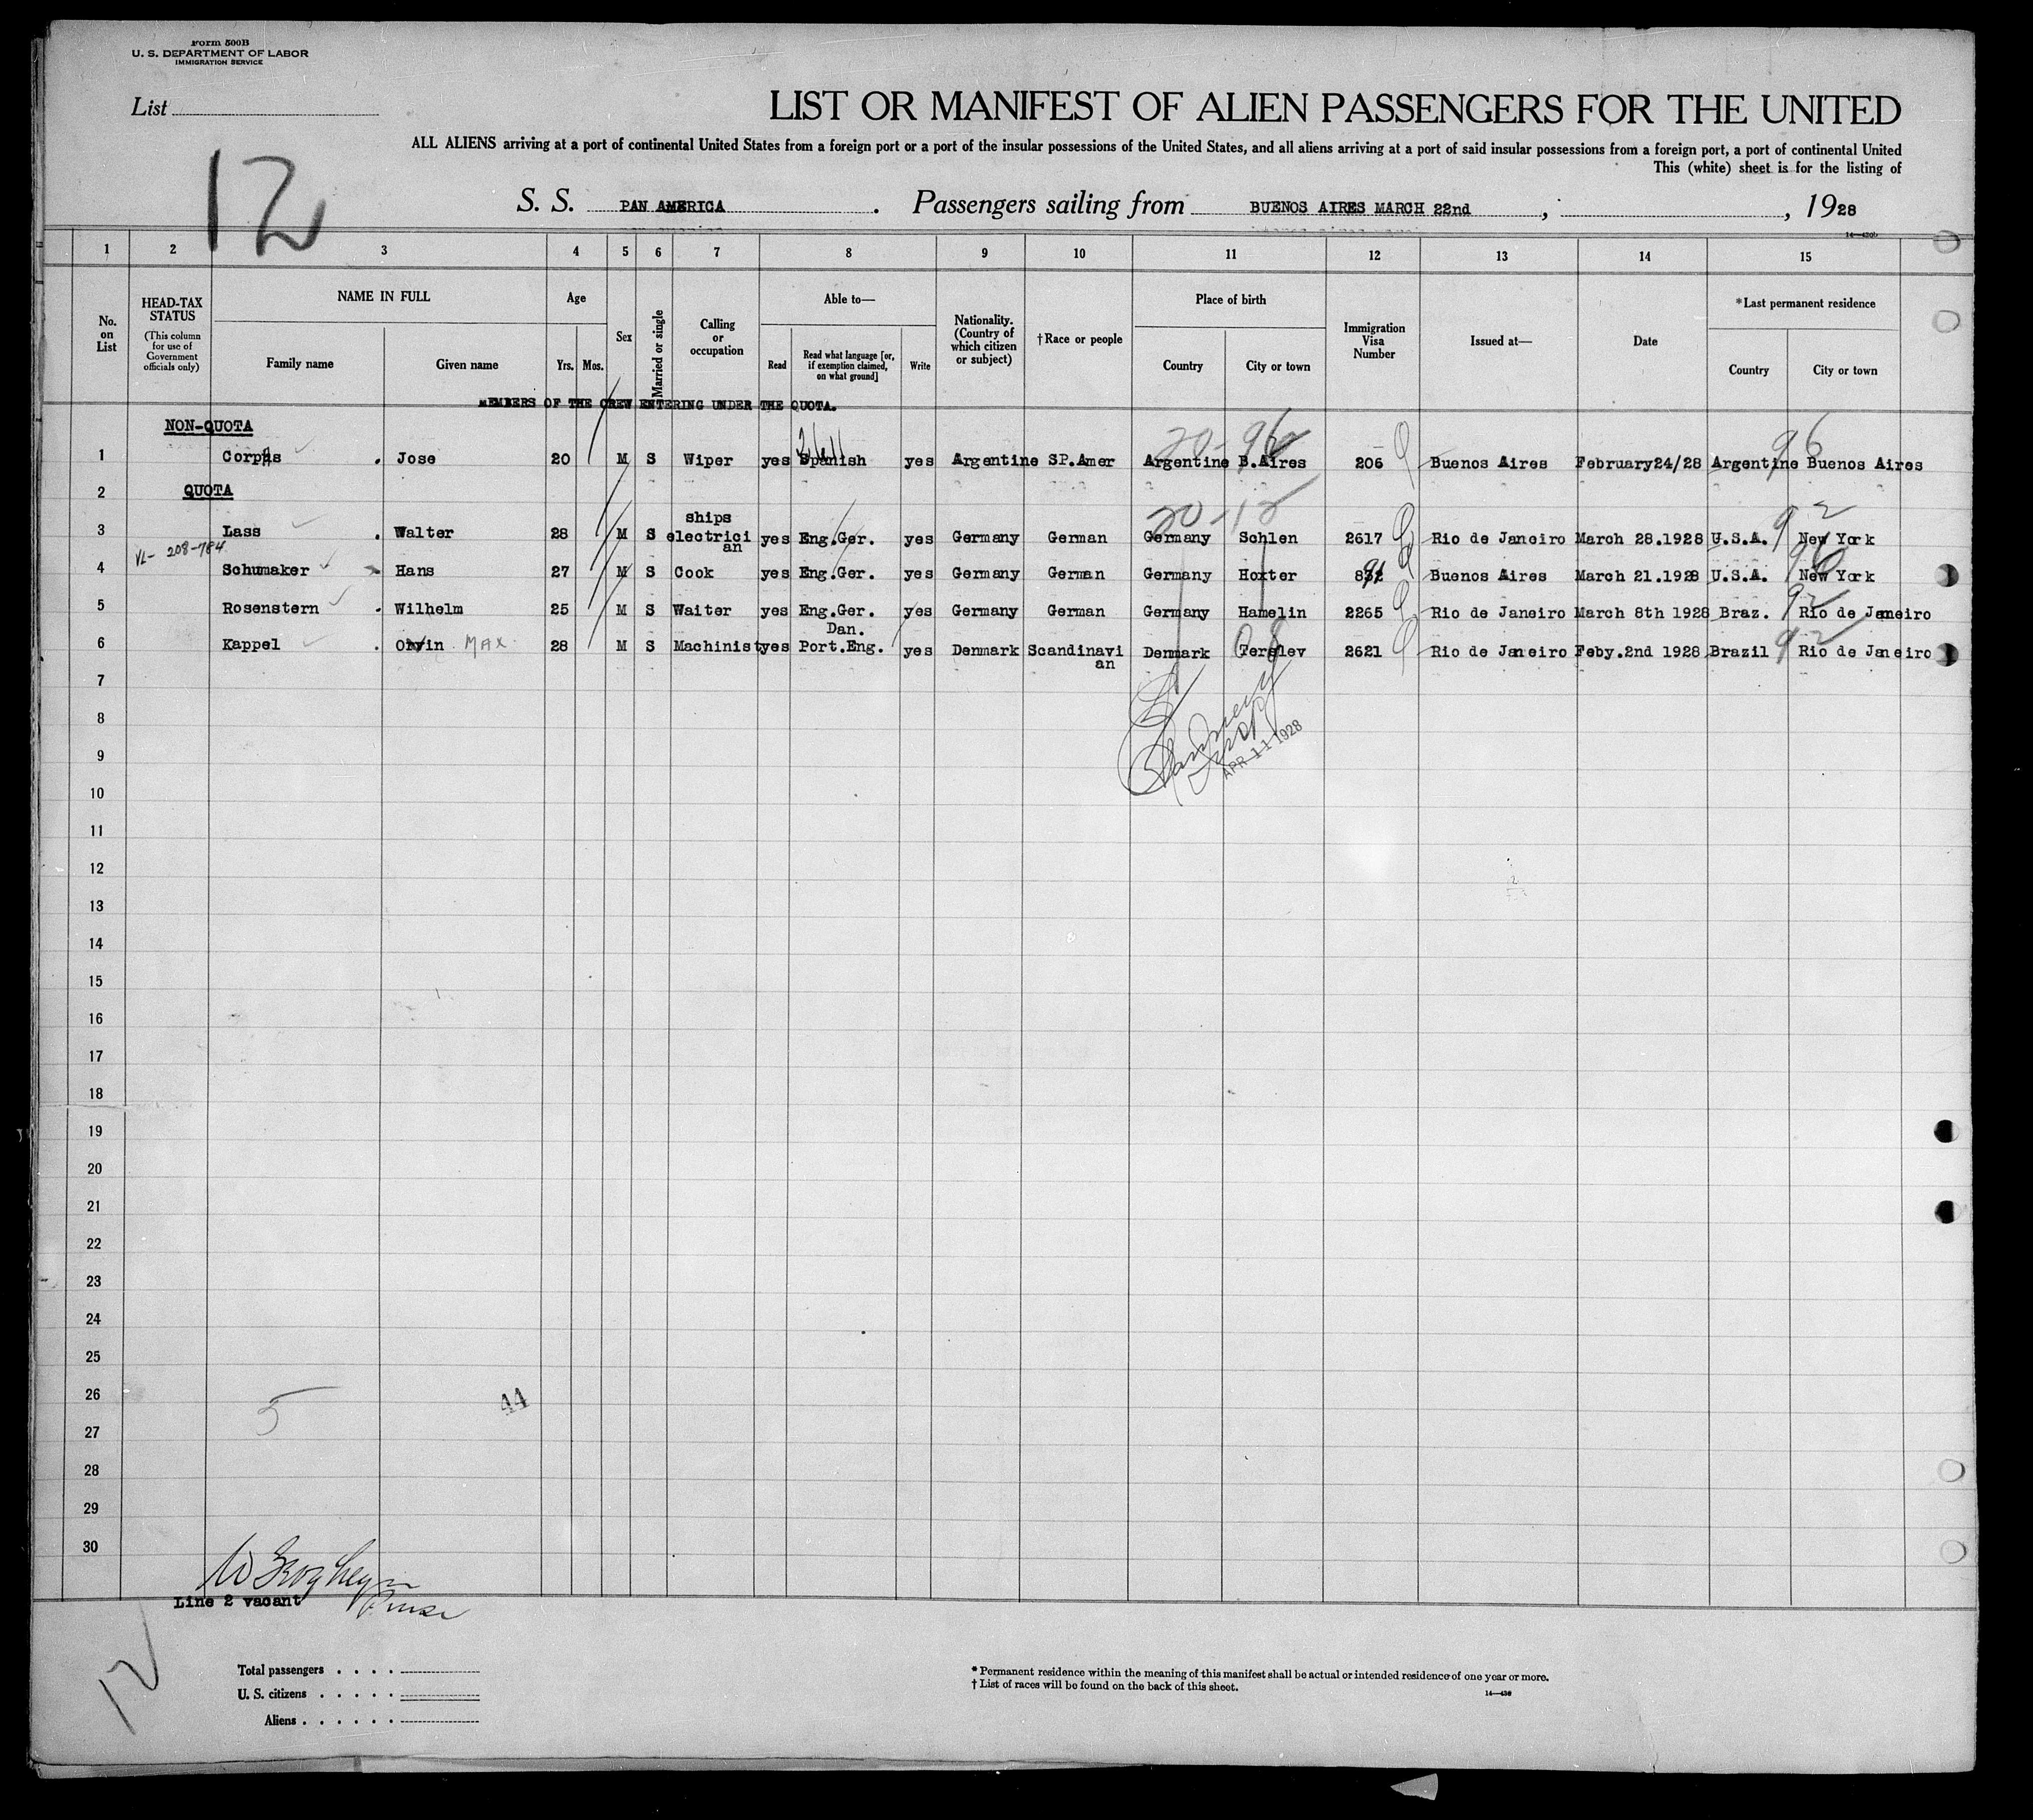 Form 500B
U. S. DEPARTMENT OF LABOR
IMMIGRATION SERVICE
List
12
LIST OR MANIFEST OF ALIEN PASSENGERS FOR THE UNITED
ALL ALIENS arriving at a port of continental United States from a foreign port or a port of the insular possessions of the United States, and all aliens arriving at a port of said insular possessions from a foreign port, a port of continental United
This (white) sheet is for the listing of
S. S. PAN AMERICA . Passengers sailing from BUENOS AIRES MARCH 22nd , , 1928
1 2 3 4 5 6 7 8 9 10 11 12 13 14 15
No. on List
HEAD-TAX STATUS
(This column for use of Government officials only)
NAME IN FULL
Family name Given name
Age
Yrs. Mos.
Sex
Married or single
Calling or occupation
Able to—
Read
Read what language [or, if exemption claimed, on what ground]
Write
Nationality. (Country of which citizen or subject)
†Race or people
Place of birth
Country City or town
Immigration Visa Number
Issued at—
Date
*Last permanent residence
Country City or town
MEMBERS OF THE CREW ENTERING UNDER THE QUOTA.
NON-QUOTA
20-96 96
1 Corpas . Jose 20 M S Wiper yes Spanish yes Argentine SP.Amer Argentine B.Aires 206 Buenos Aires February24/28 Argentine Buenos Aires
2 QUOTA
20-12 92
3 Lass . Walter 28 M S ships electrician yes Eng.Ger. yes Germany German Germany Sohlen 2617 Rio de Janeiro March 28.1928 U.S.A. New York
VL- 208-784
96
4 Schumaker Hans 27 M S Cook yes Eng.Ger. yes Germany German Germany Hoxter Buenos Aires March 21.1928 U.S.A. New York
92
5 Rosenstern . Wilhelm 25 M S Waiter yes Eng.Ger. yes Germany German Germany Hamelin 2265 Rio de Janeiro March 8th 1928 Braz. Rio de Janeiro
92
6 Kappel . MAX 28 M S Machinist yes Dan. Port.Eng. yes Denmark Scandinavian Denmark 2621 Rio de Janeiro Feby.2nd 1928 Brazil Rio de Janeiro
7
8
APR 11 1928
9
10
11
12
13
14
15
16
17
18
19
20
21
22
23
24
25
26
5 44
27
28
29
30
Line 2 vacant
12
Total passengers
U. S. citizens
Aliens
* Permanent residence within the meaning of this manifest shall be actual or intended residence of one year or more.
† List of races will be found on the back of this sheet.